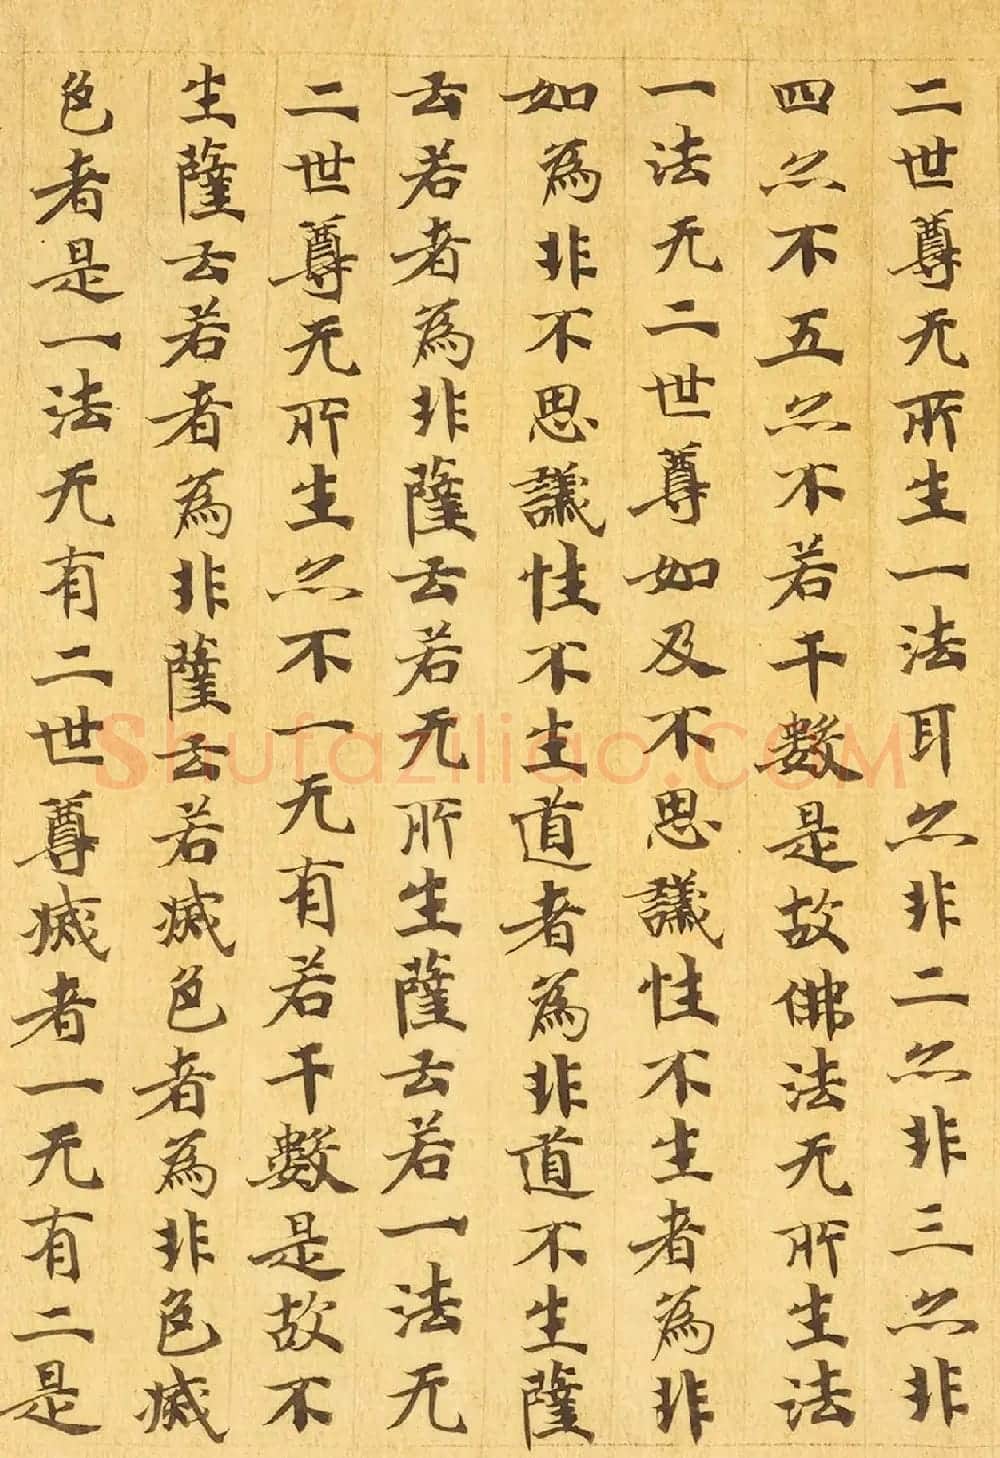 二世尊无所生一法耳亦非二亦非三亦非
四亦不五亦不若干數是故佛法无所生法
一法无二世尊如及不思議性不生者為非
如為非不思議性不生道者為非道不生薩
云若者為非薩云若无所生薩云若一法无
二世尊无所生亦不一无有若干數是故不
生薩云若者為非薩云若滅色者為非色滅
色者是一法无有二世尊滅者一无有二是
Shufaziliao.COM